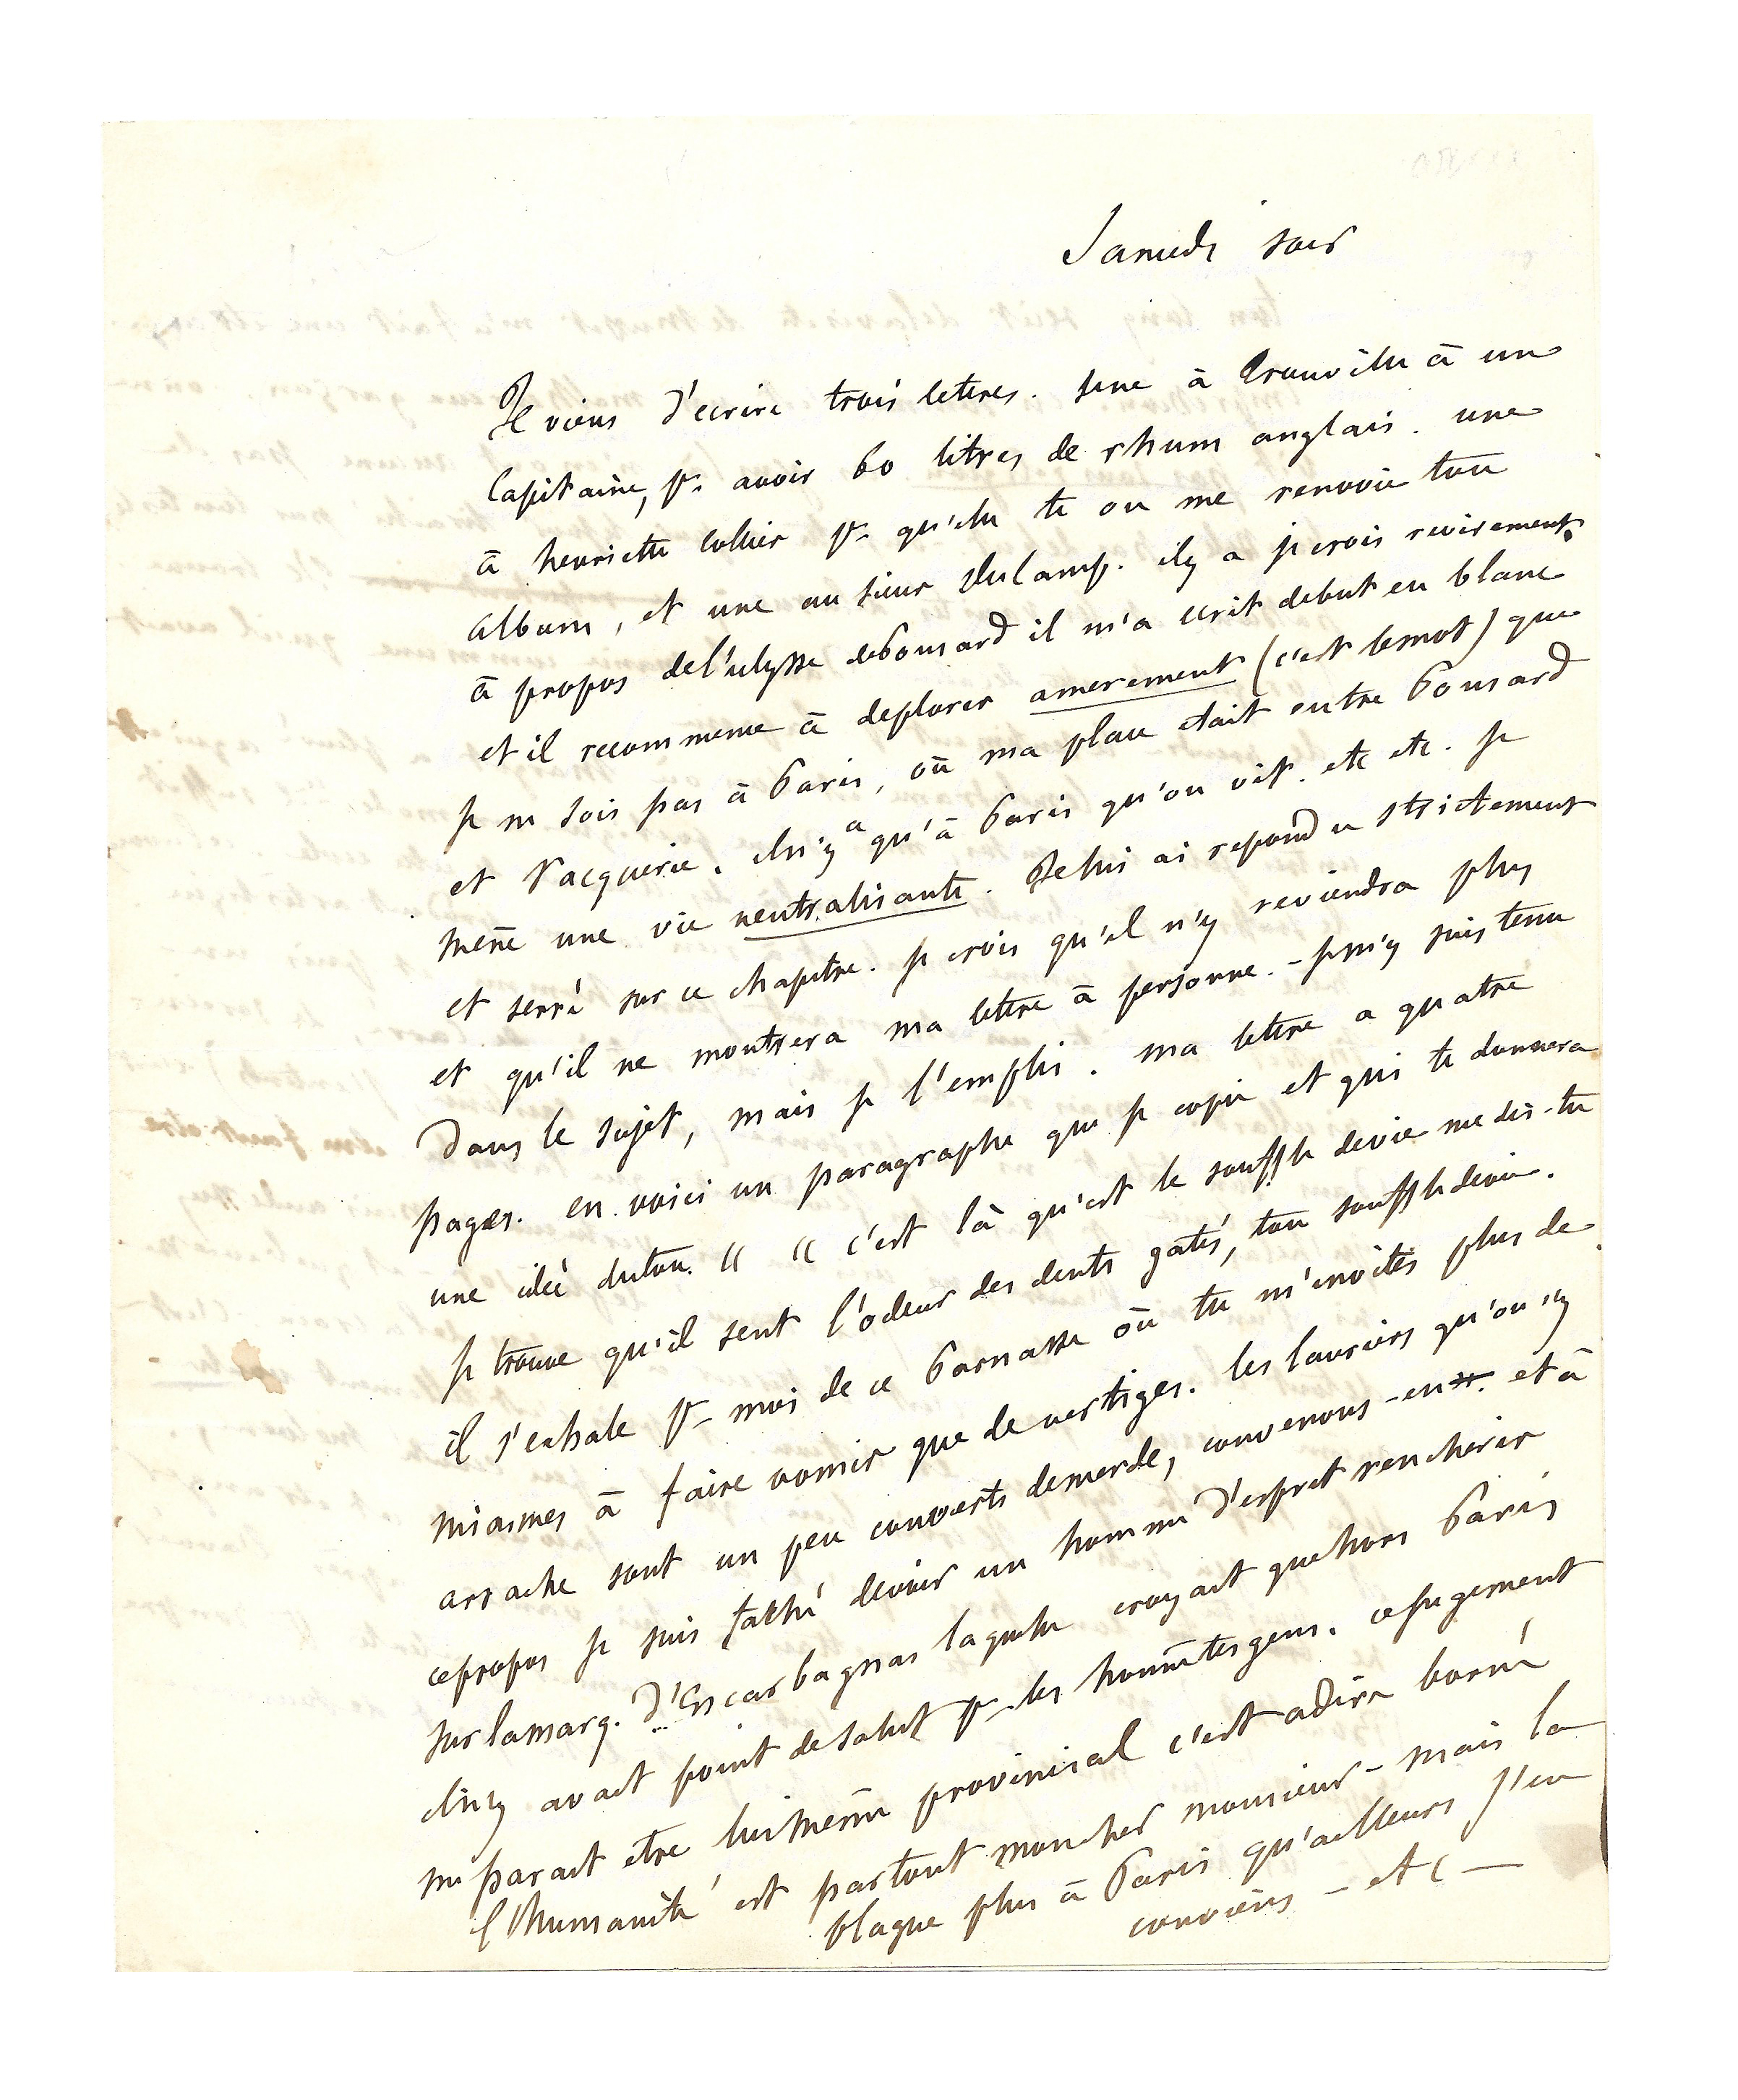 Samedi soir
Je viens d'ecrire trois lettres. une à Trouville à un
Capitaine, pr avoir 60 litres de rhum anglais. une
à henriette Collier pr qu'elle te ou me renvoie ton
album, et une au sieur Ducamp. il y a je crois revirement.
à propos de l'ulysse de Ponsard il m'a ecrit debut en blanc
et il recommence à deplorer amerement (c'est le mot) que
je ne sois pas à Paris, où ma place etait entre Ponsard
et Vacquerie. il n'y a qu'à Paris qu'on vit. etc etc. je
mène une vie neutralisante. Je lui ai repondu strictement
et serré sur ce chapitre. je crois qu'il n'y reviendra plus
et qu'il ne montrera ma lettre à personne. - je m'y suis tenu
Dans le sujet, mais je l'emplis. ma lettre a quatre
pages. en voici un paragraphe que je copie et qui te donnera
une idée du ton. « « c'est là qu'est le souffle de vie me dis-tu
je trouve qu'il sent l'odeur des dents gatés, ton souffle de vie.
il s'exhale pr moi de ce Parnasse où tu m'invites plus de
miasmes à faire vomir que de vertiges. les lauriers qu'on s'y
arrache sont un peu couverts de merde, convenons-en. et à
ce propos je suis faché de voir un homme d'esprit rencherir
sur la marq. D'Escarbagnas laquelle croyait que hors Paris
il n'y avait point de salut pr les honnêtes gens. ce jugement
me parait etre lui même provincial c'est a dire borné
l'humanité est partout mon cher monsieur - mais la
blague plus à Paris qu'ailleurs j'en
conviens - etc —